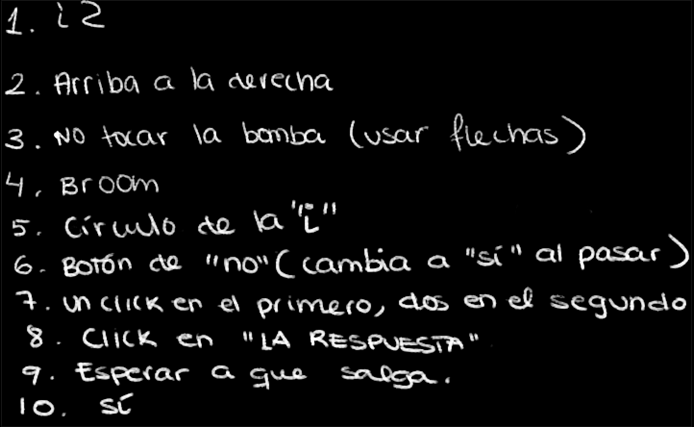 1. i2
2. Arriba a la derecha
3. NO tocar la bomba (usar flechas)
4. Broom
5. Círculo de la "i"
6. Botón de "no" (cambia a "sí" al pasar)
7. un click en el primero, dos en el segundo
8. Click en "LA RESPUESTA"
9. Esperar a que salga.
10. sí